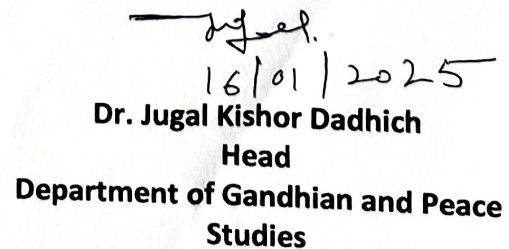 Jugal.
16/01/2025
Dr. Jugal Kishor Dadhich
Head
Department of Gandhian and Peace
Studies